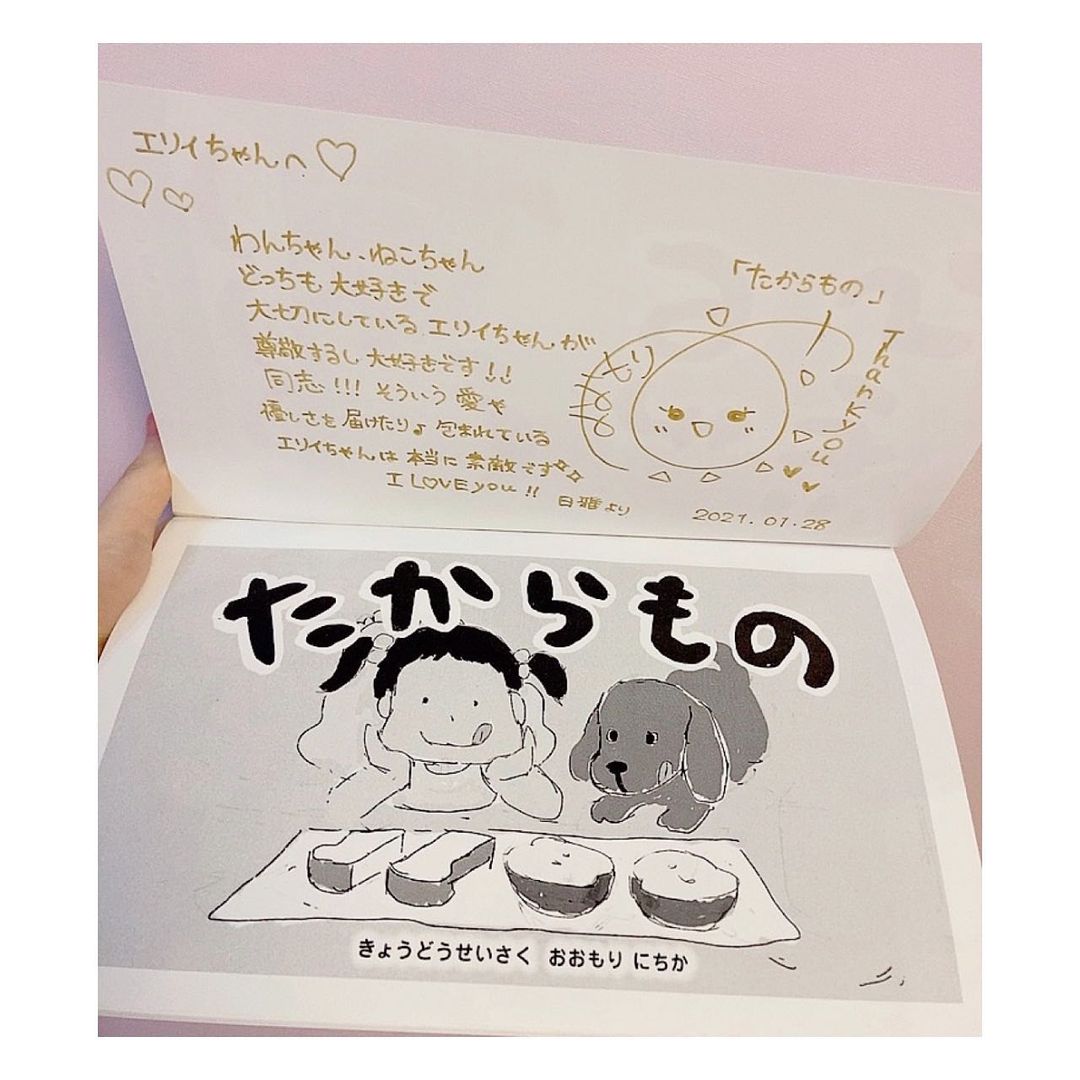 エリイちゃんへ♡
♡♡
わんちゃん、ねこちゃん
どっちも大好きで
大切にしているエリイちゃんが
尊敬するし大好きです!!
同志!!!そういう愛や
優しさを届けたり♪包まれている
エリイちゃんは本当に素敵です
I LOVE you!!
日雅より
「たからもの」
Thank you
2021.01.28
たからもの
きょうどうせいさく おおもり にちか